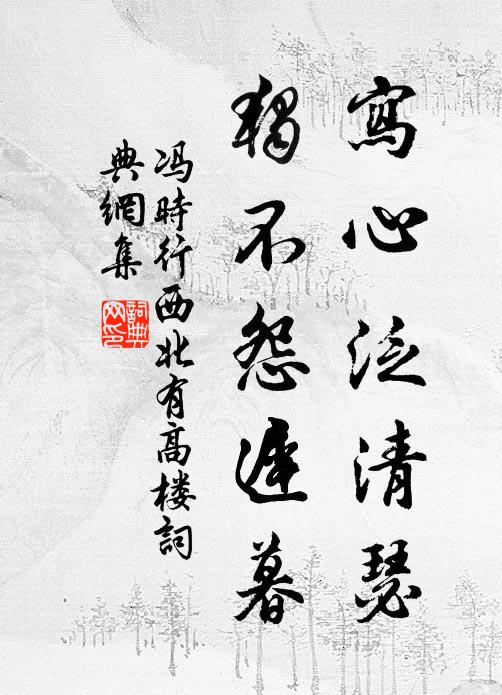 寫心泛清瑟
獨不怨遲暮
冯時行西北有高楼詞
典網集
詞典
网印